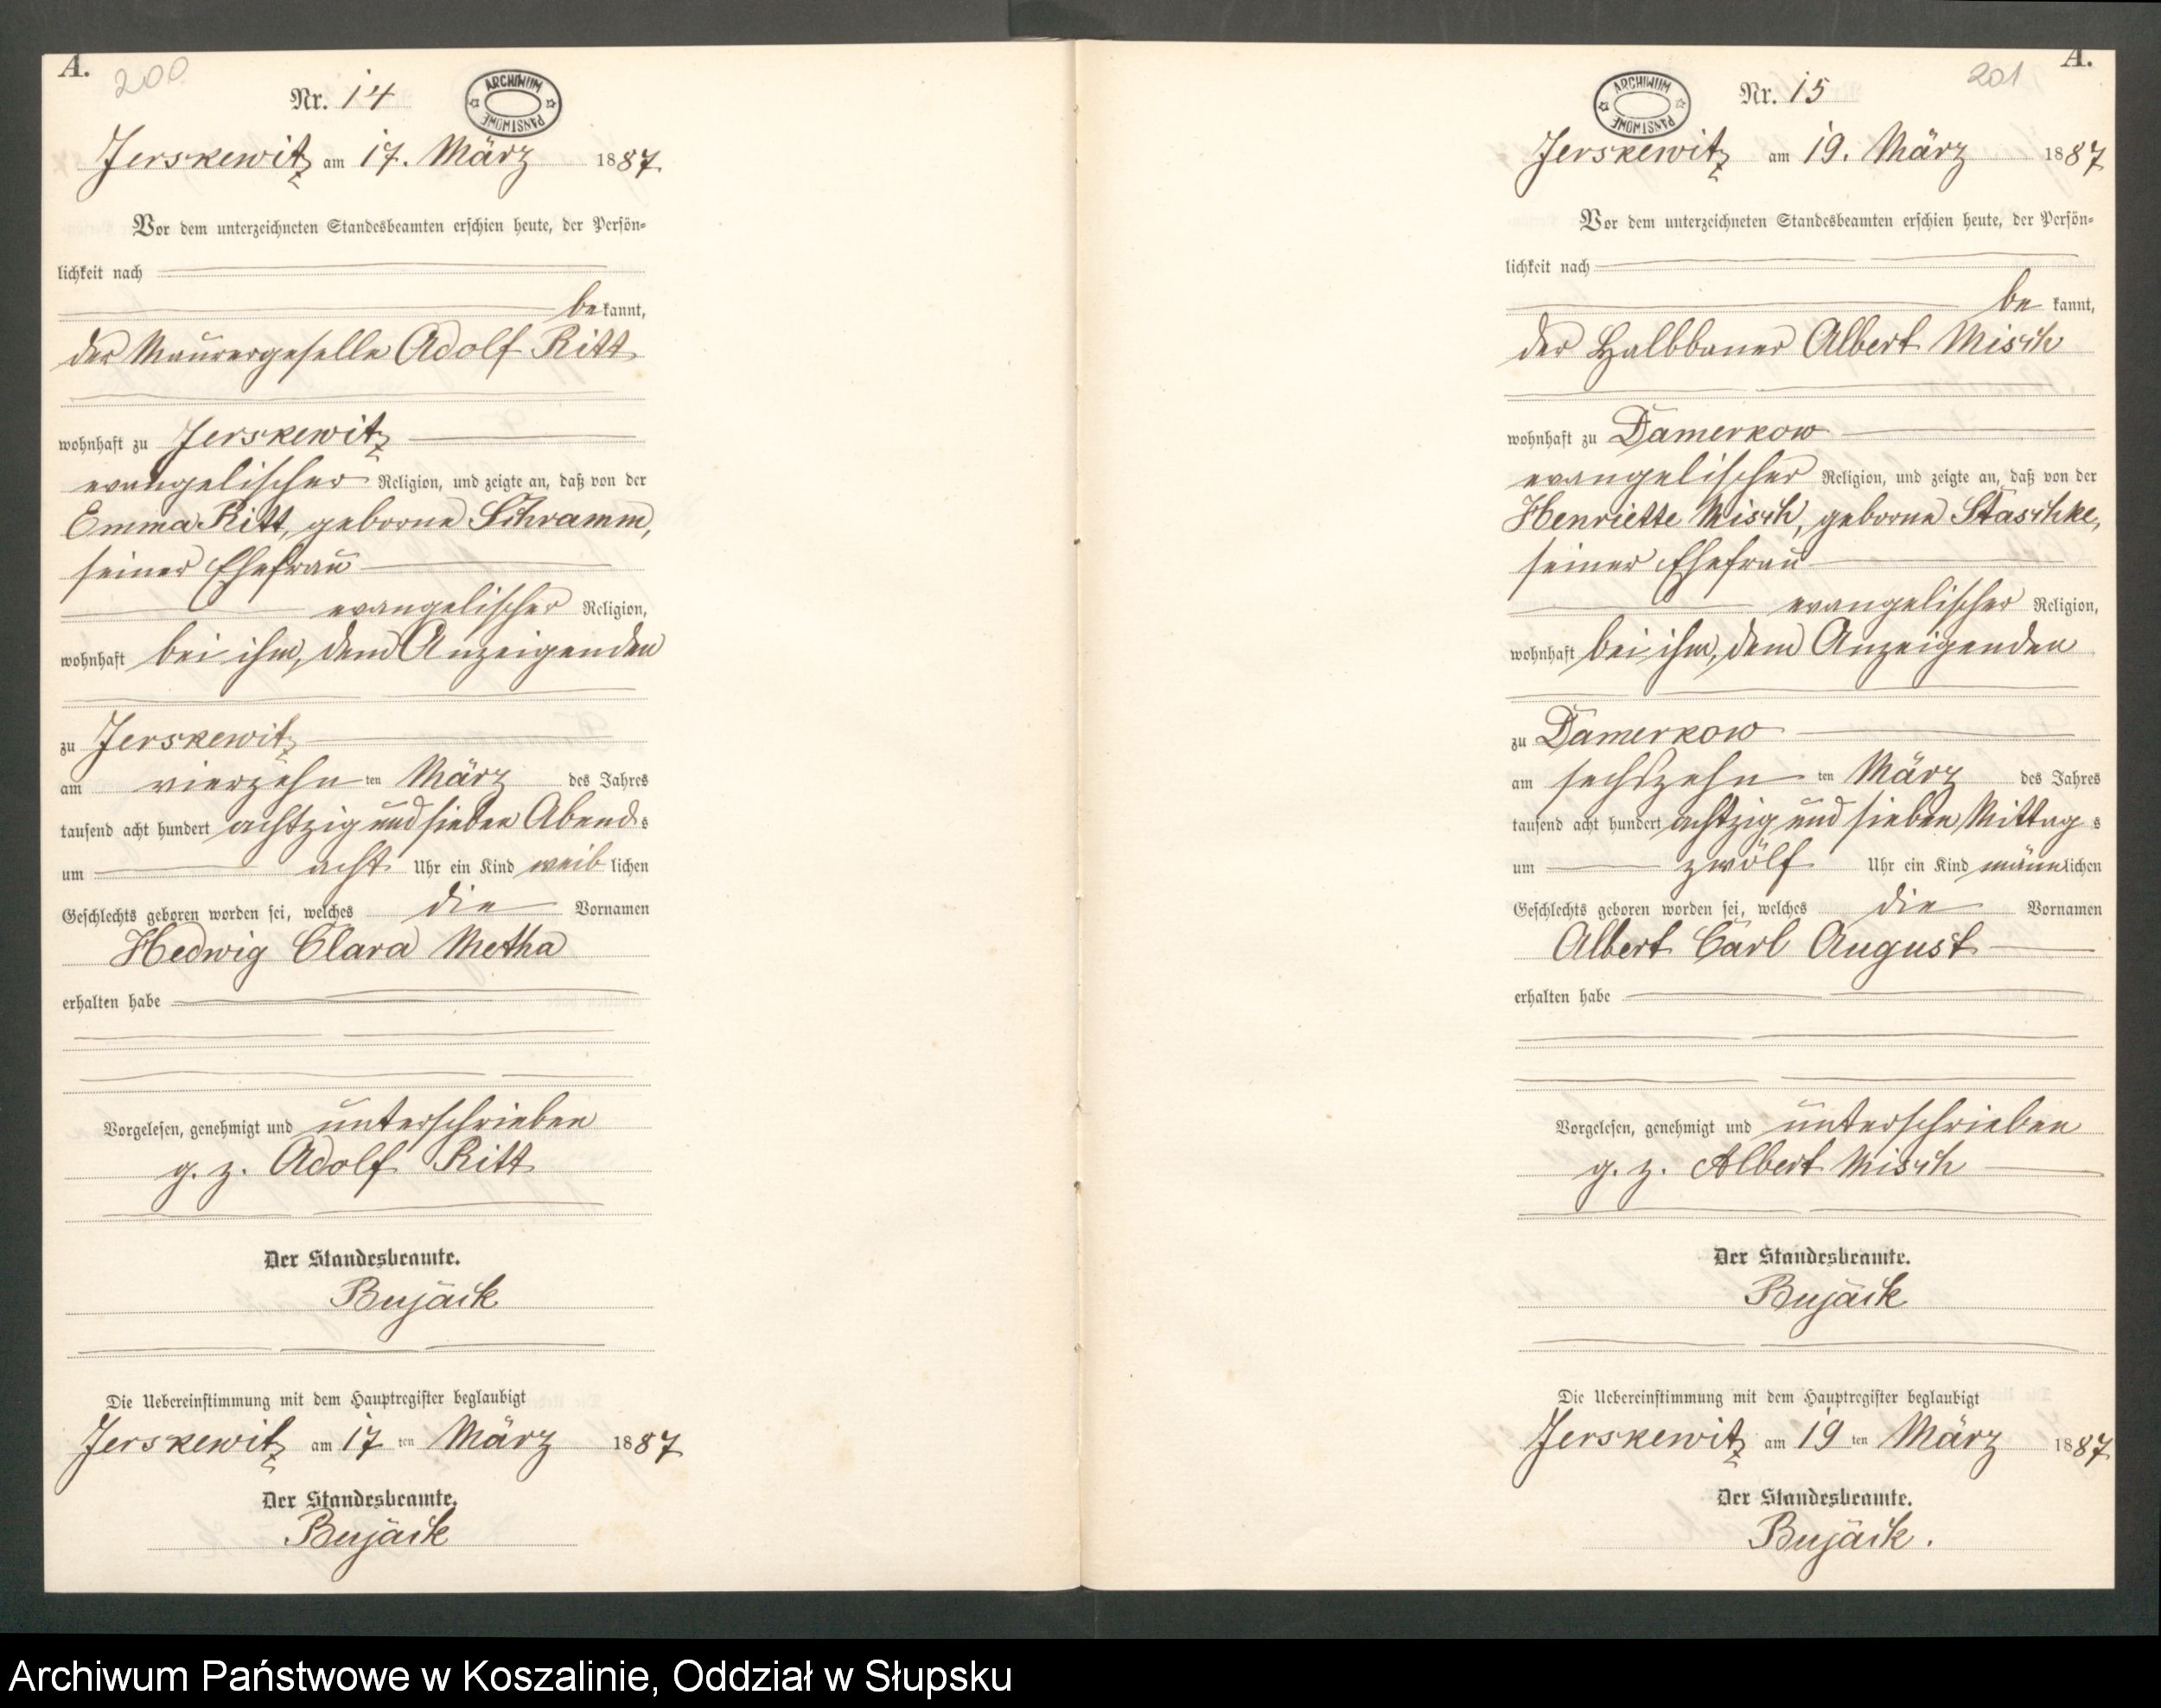 A.
200
Nr. 14
ARCHIWUM PAŃSTWOWE
Jerskewitz am 17. März 1887.
Vor dem unterzeichneten Standesbeamten erschien heute, der Persön-
lichkeit nach
bekannt,
der Maurergeselle Adolf Ritt
wohnhaft zu Jerskewitz
evangelischer Religion, und zeigte an, daß von der
Emma Ritt, geborne Schramm,
seiner Ehefrau
evangelischer Religion,
wohnhaft bei ihm, dem Anzeigenden
zu Jerskewitz
am vierzehn ten März des Jahres
tausend acht hundert achtzig und sieben Abends
um acht Uhr ein Kind weiblichen
Geschlechts geboren worden sei, welches die Vornamen
Hedwig Clara Metha
erhalten habe
Vorgelesen, genehmigt und unterschrieben
g. z. Adolf Ritt
Der Standesbeamte.
Bujäck
Die Uebereinstimmung mit dem Hauptregister beglaubigt
Jerskewitz am 17 ten März 1887
Der Standesbeamte.
Bujäck
A.
201
Nr. 15
ARCHIWUM PAŃSTWOWE
Jerskewitz am 19. März 1887
Vor dem unterzeichneten Standesbeamten erschien heute, der Persön-
lichkeit nach
be kannt,
der Halbbauer Albert Misch
wohnhaft zu Damerkow
evangelischer Religion, und zeigte an, daß von der
Henriette Misch, geborne Staschke,
seiner Ehefrau
evangelischer Religion,
wohnhaft bei ihm, dem Anzeigenden
zu Damerkow
am sechszehn ten März des Jahres
tausend acht hundert achtzig und sieben Mittags
um zwölf Uhr ein Kind männlichen
Geschlechts geboren worden sei, welches die Vornamen
Albert Carl August
erhalten habe
Vorgelesen, genehmigt und unterschrieben
g. z. Albert Misch
Der Standesbeamte.
Bujäck
Die Uebereinstimmung mit dem Hauptregister beglaubigt
Jerskewitz am 19 ten März 1887
Der Standesbeamte.
Bujäck.
Archiwum Państwowe w Koszalinie, Oddział w Słupsku